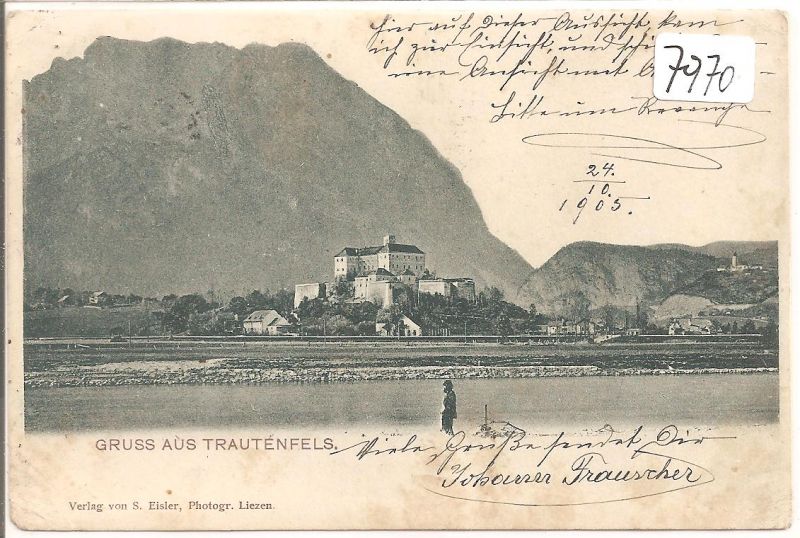 Hier auf dieser Aussicht kam
ich zur Einsicht, und
eine Ansicht mit
7970
Bitte um Revanche
24.
10.
1905.
GRUSS AUS TRAUTENFELS.
Viele Grüße sendet Dir
Johann Trauscher
Verlag von S. Eisler, Photogr. Liezen.